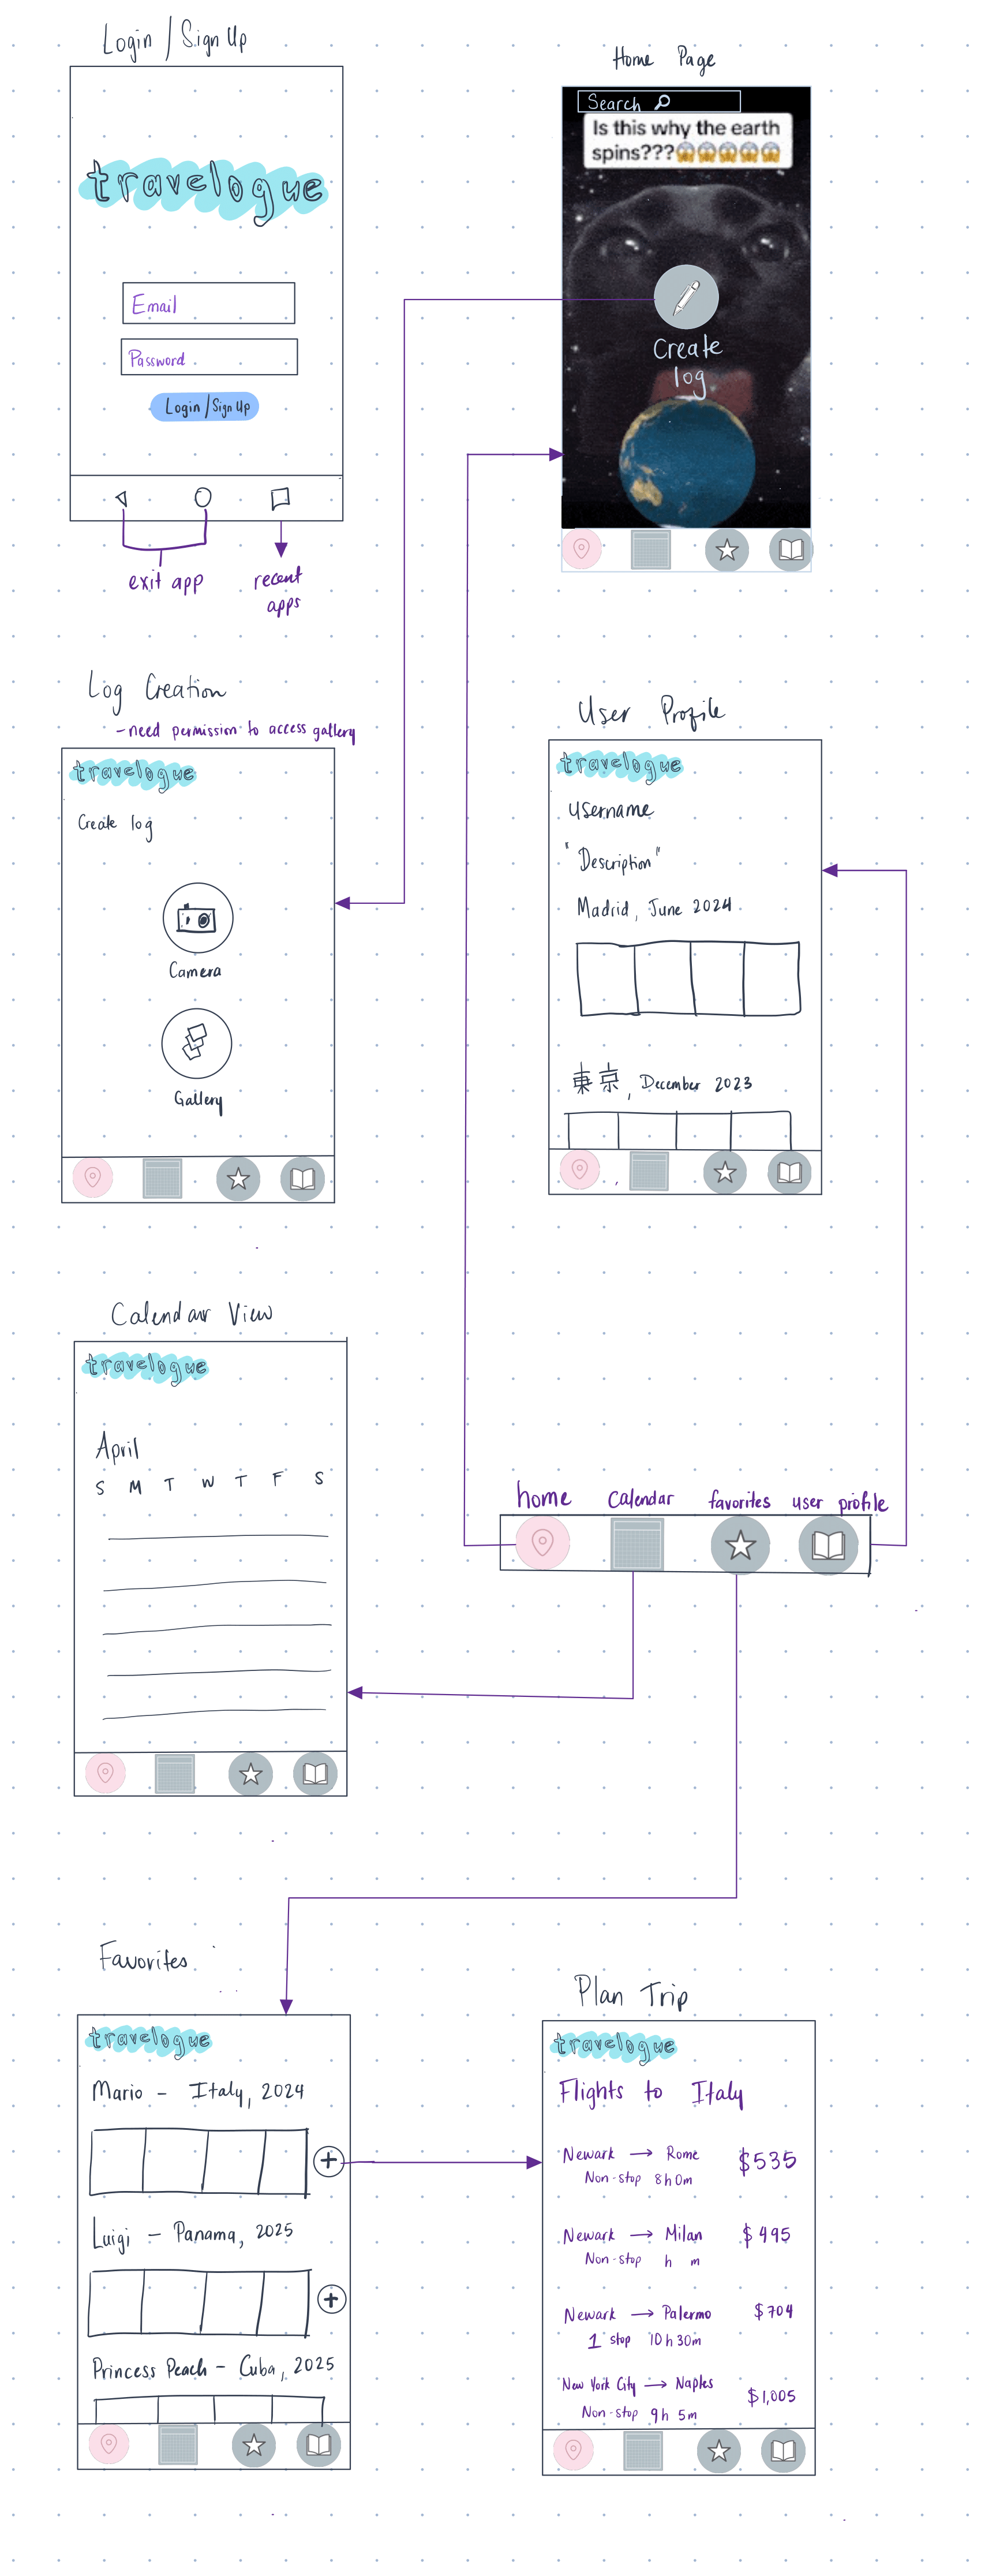 Login / Sign Up
travelogue
Email
Password
Login / Sign Up
exit app
recent
apps
Home Page
Search
Is this why the earth
spins???😱😱😱😱😱
Create
log
Log Creation
- need permission to access gallery
travelogue
Create log
Camera
Gallery
User Profile
travelogue
Username
"Description"
Madrid, June 2024
東京, December 2023
Calendar View
travelogue
April
S M T W T F S
home calendar favorites user profile
Favorites
travelogue
Mario - Italy, 2024
+
Luigi - Panama, 2025
+
Princess Peach - Cuba, 2025
Plan Trip
travelogue
Flights to Italy
Newark → Rome $535
Non-stop 8h 0m
Newark → Milan $495
Non-stop h m
Newark → Palermo $704
1 stop 10h 30m
New York City → Naples $1,005
Non-stop 9h 5m